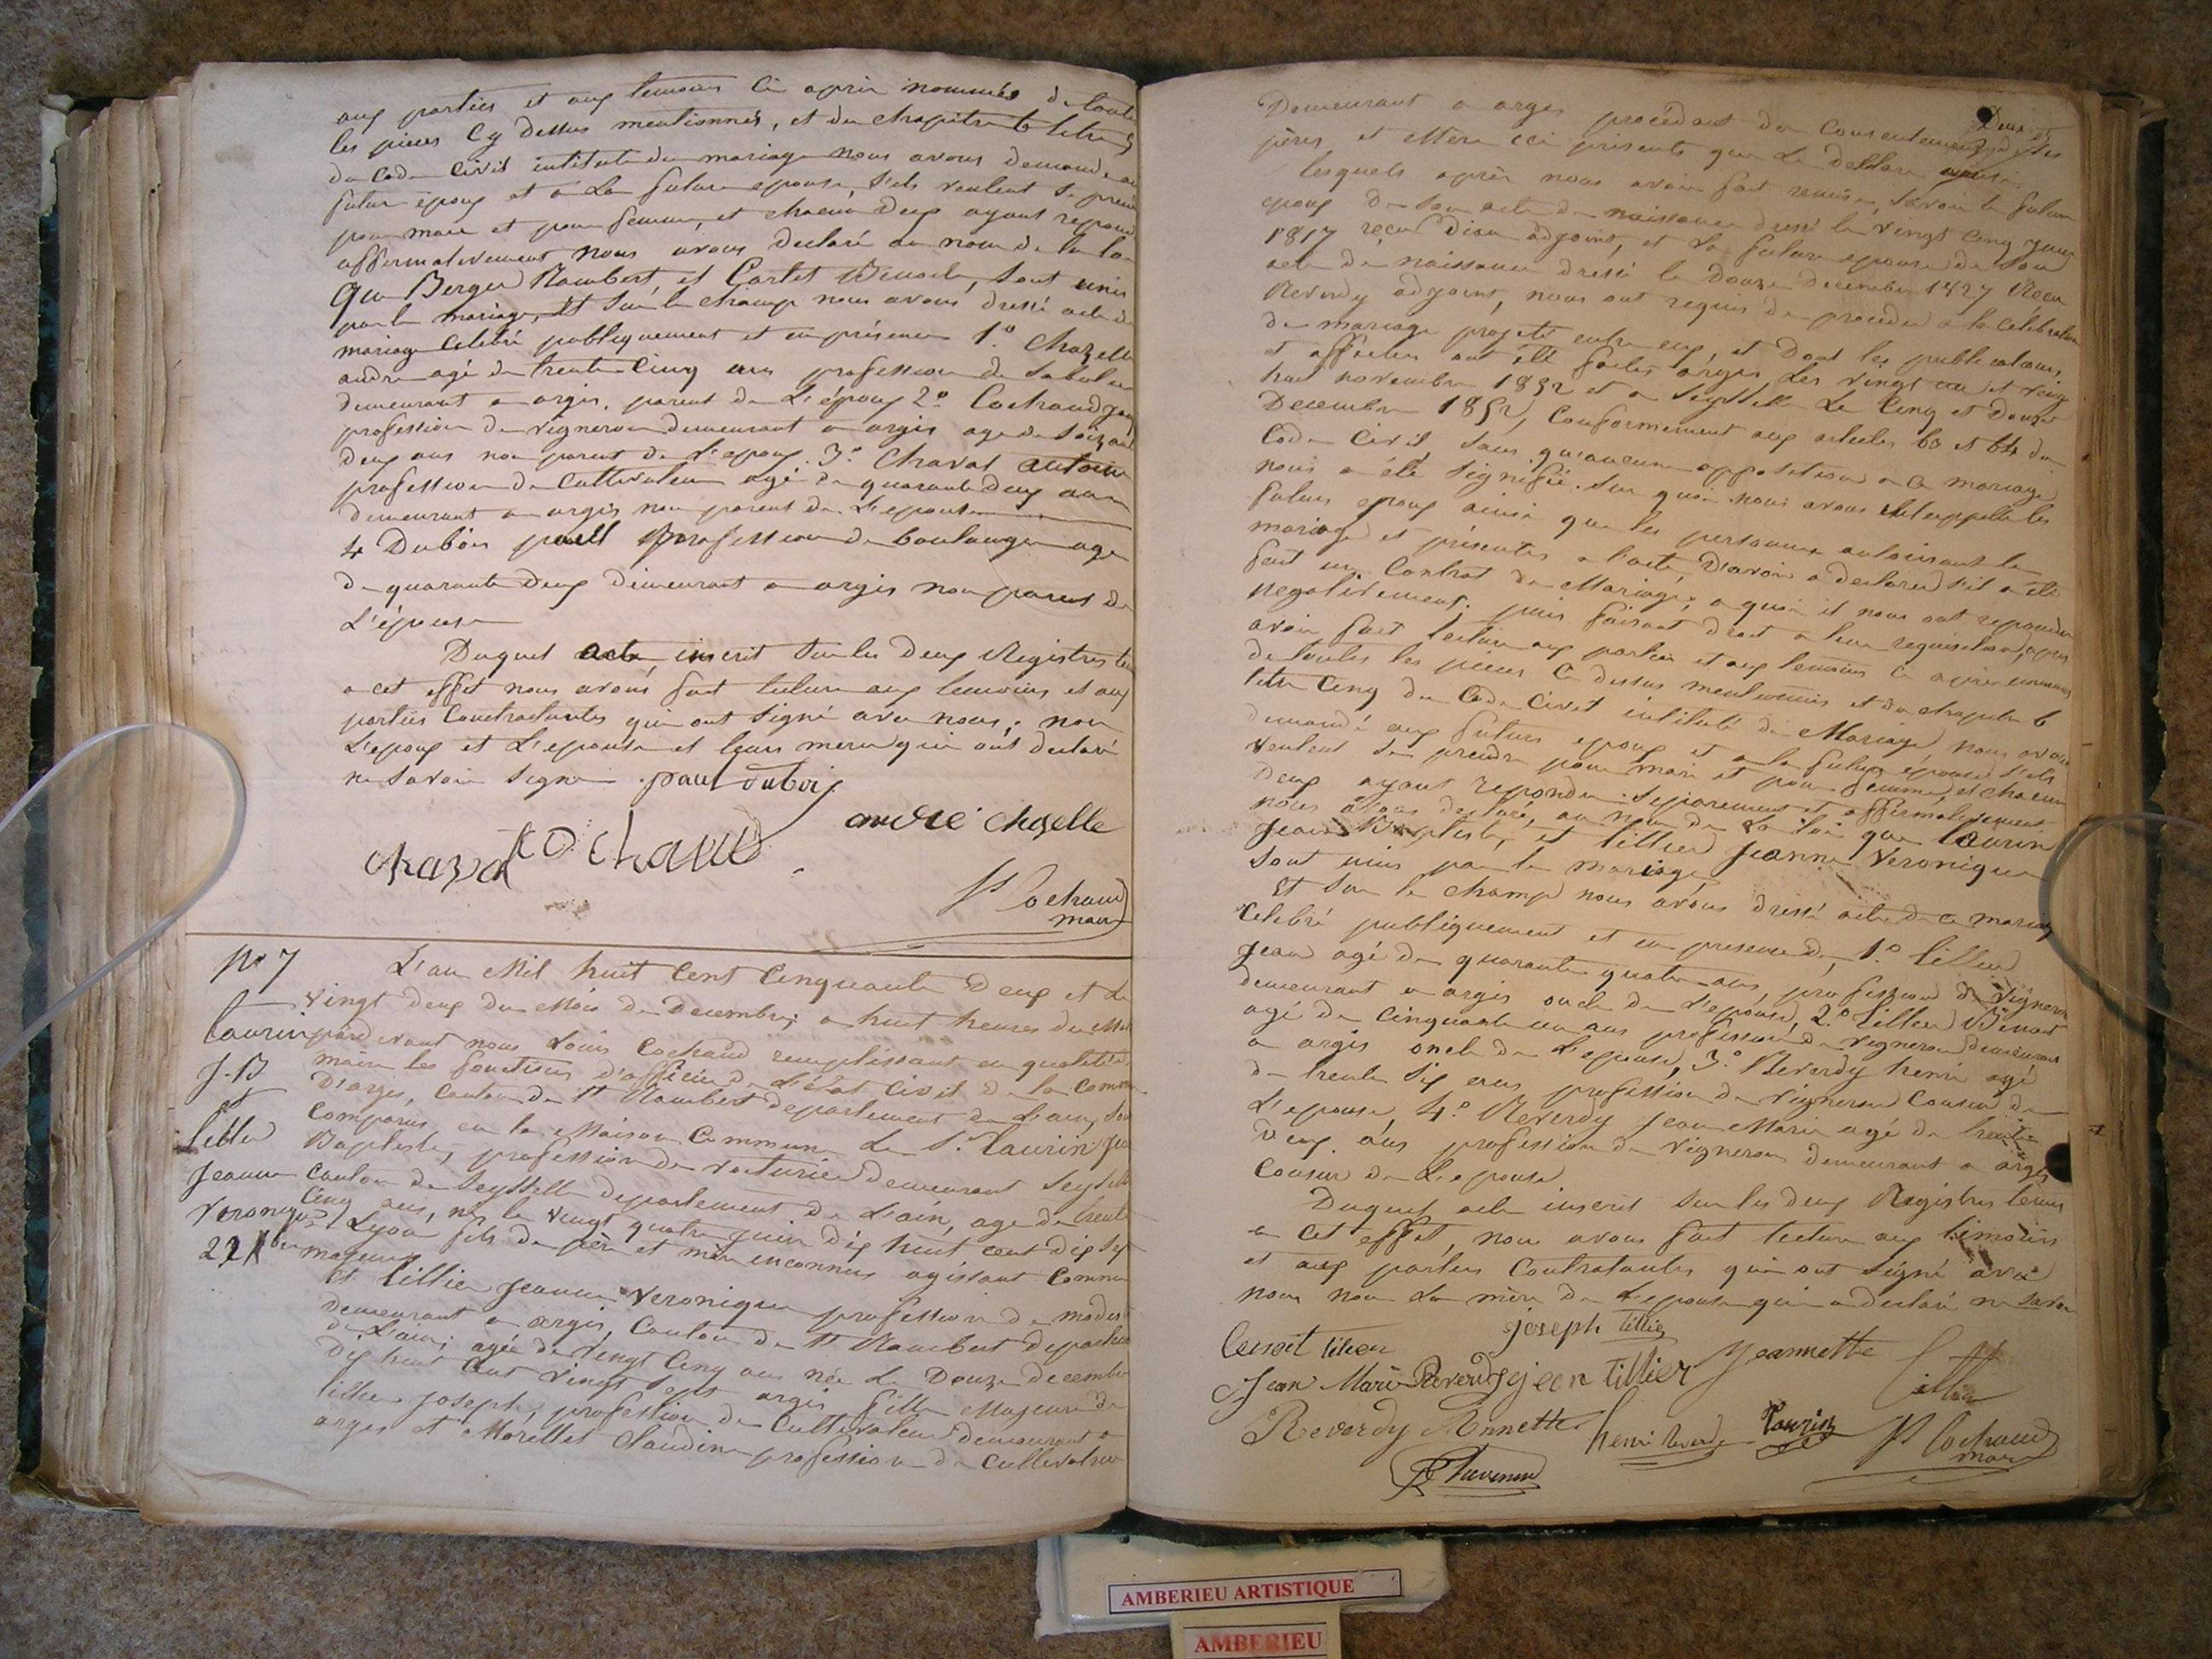 aux parties et aux temoins ci après nommés de toute
les pieces cy dessus mentionnés, et du chapitre 6 titre 5
du code civil intitulé du mariage nous avons demandé au
futur epoux et a la future epouse, s'ils veulent se prend
pour mari et pour femme, et chacun deux ayant repond
affirmativement nous avons declaré au nom de la loi
que Berger Rambert, et Cartet Benoite, sont unis
par le mariage, Et sur le champ nous avons dressé acte de
mariage celebré publiquement et en présence 1.o Chazelle
andré agé de trente cinq ans profession de
demeurant a argis, parent de L'époux 2.o Cochaud
profession de vigneron demeurant a argis age de soixante
deux ans non parent de l'epoux. 3.o Chavat antoine
profession de Cultivateur agé de quarante deux ans
demeurant a argis non parent de L'epouse
4 Dubois paul profession de boulanger age
de quarante deux demeurant a argis non parent de
L'épouse
Duquel acte, inscrit sur les deux Registres tenu
a cet effet nous avons fait lecture aux temoins et aux
parties Contractantes qui ont signé avec nous; non
L'epoux et L'epouse et leurs meres qui ont declaré
ne savoir signer. paul dubois
andré chazelle
chavat Cochaud
Ls Cochaud
maire
No 7
taurin
J-B
et
tillier
Jeanne
Veronique
22 Xbre
L'an Mil huit Cent Cinquante Deux et le
vingt deux du Mois de Decembre, a huit heures du
pardevant nous Louis Cochaud remplissant en qualité de
maire les fonctions D'officier de L'état civil de la Commune
D'arges, Canton de St Rambert departement de L'ain, sont
comparus en la Maison Commune Le Sr. taurin Jean
Baptiste, profession de voiturier demeurant Seyssel
canton de Seyssell departement de L'ain, age de trente
Cinq ans, né le vingt quatre juin dix huit cent dix sept
a Lyon fils de père et mère inconnus agissant comme
majeur
Et tillier Jeanne Veronique profession de modiste
demeurant a argis, Canton de St Rambert departement
de L'ain; agée de vingt cinq ans née Le Douze decembre
Dix huit cent vingt sept argis fille Majeure de
tillier Joseph, profession de Cultivateur demeurant a
arges et Morellet Claudine profession de cultivatrice
Demeurant a arges procédant du consentement de ses
pères et Mère ici présents que Le declare ainsi
lesquels après nous avoir fait remise, savoir le futur
epoux de son acte de naissance dressé le vingt cinq juin
1817 reçu Dian adjoint, et la future epouse de son
acte de naissance dressé le Douze Decembre 1827 Reçu
Reverdy adjoint, nous ont requis de proceder a la celebration
de mariage projeté entre eux, et Dont les publications
et affiches ont été faites arges Les vingt un et vingt
huit novembre 1852 et a Seyssell Le Cinq et Douze
Decembre 1852, conformement aux articles 63 et 64 du
Code Civil, sans qu'aucune opposition a ce mariage
nous a été signifié. Sur quoi nous avons interppellé les
futurs epoux ainsi que les personnes autorisant le
mariage et présentes a l'acte, D'avoir a declarer s'il a été
fait un Contrat de Mariage; a quoi il nous ont repondu
negativement; puis faisant droit a leur requisition, apres
avoir fait lecture aux parties et aux temoins ci après nommés
de toutes les pieces Ci dessus mentionnés et du chapitre 6
titre Cinq du Code Civil intitulé du Mariage, nous avons
demandé aux futurs epoux et a la future épouse s'ils
veulent se prendre pour mari et pour femme, et chacun
Deux ayant repondu separement et affirmativement
nous avons declaré, au nom de La loi que taurin
Jean Baptiste, et tillier Jeanne Veronique
sont unis par le mariage
Et sur le champ nous avons dressé acte de ce mariage
celebré publiquement et en presence de, 1.o tillier
Jean agé de quarante quatre ans, profession de vigneron
demeurant a argis oncle de L'epouse, 2.o tillier Benoit
agé de cinquante un ans profession de vigneron demeurant
a argis oncle de L'epouse, 3.o Reverdy henri agé
de trente six ans profession de vigneron Cousin de
L'epouse, 4.o Reverdy Jean Marie agé de trente
Deux ans profession de vigneron demeurant a arges
Cousin de L'epouse
Duquel acte inscrit sur les deux Registres tenus
a cet effet, nous avons fait lecture aux temoins
et aux parties Contratantes qui ont signé avec
nous non la mère de L'epouse qui a declaré ne savoir
benoit tilier joseph tillier
Jean Marie Reverdy jean tillier Jeannette tillier
Reverdy Annette henri Reverdy Taurin Ls Cochaud
maire
AMBERIEU ARTISTIQUE
AMBERIEU